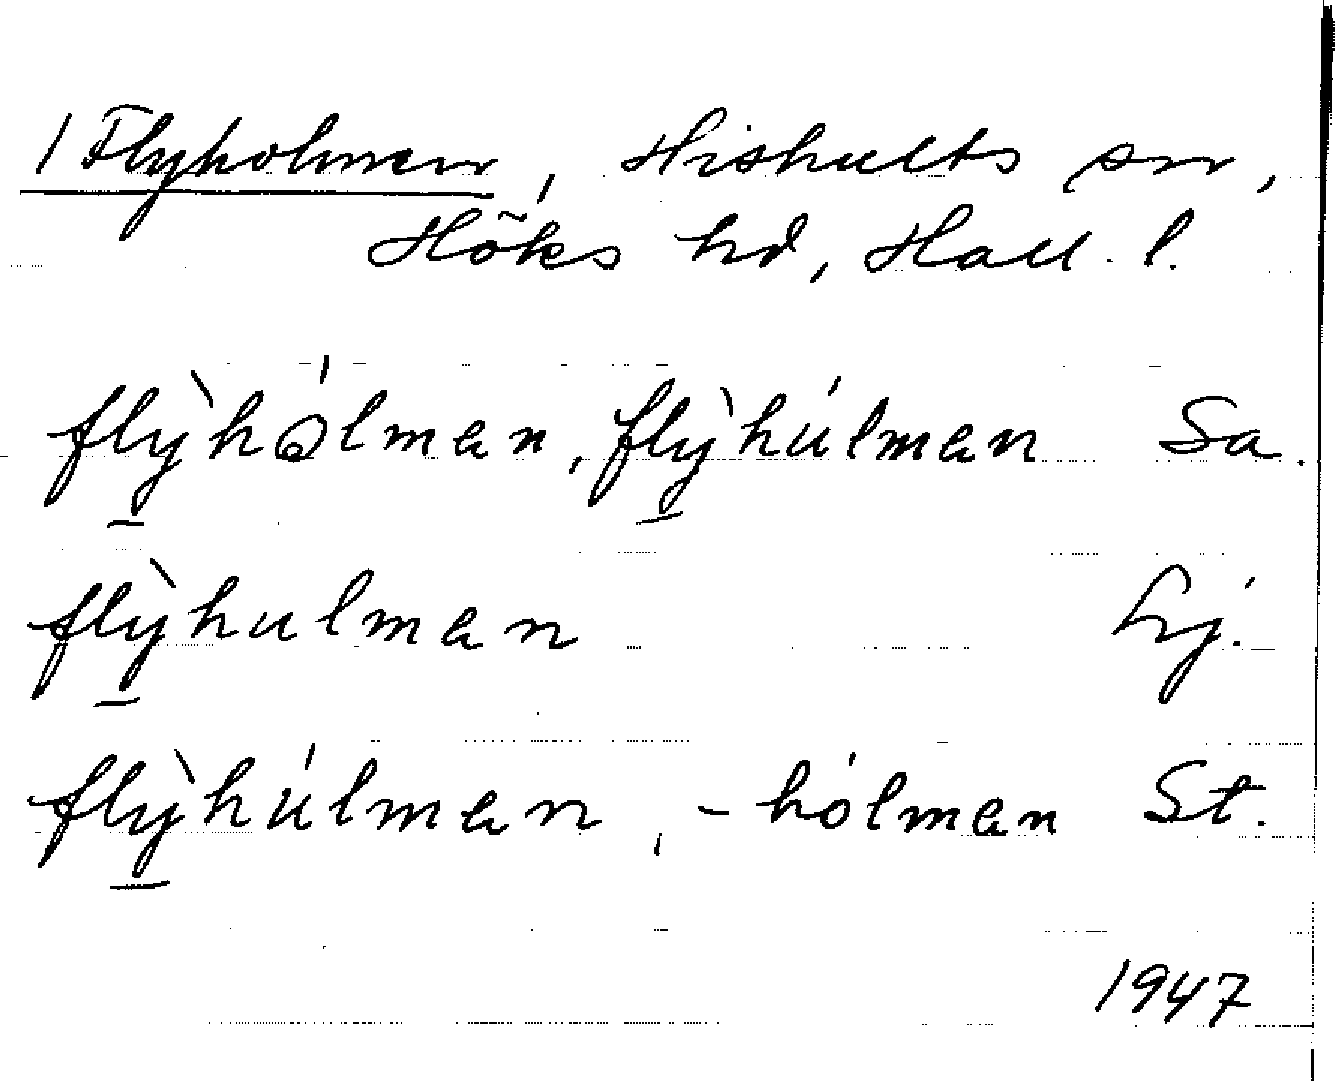 1 Flyholmen, Hishults sn,
Höks hd, Hall. l.
flỳhólman, flỳhúlman Sa.
flỳhulman Lj.
flỳhúlman, -hólman St.
1947